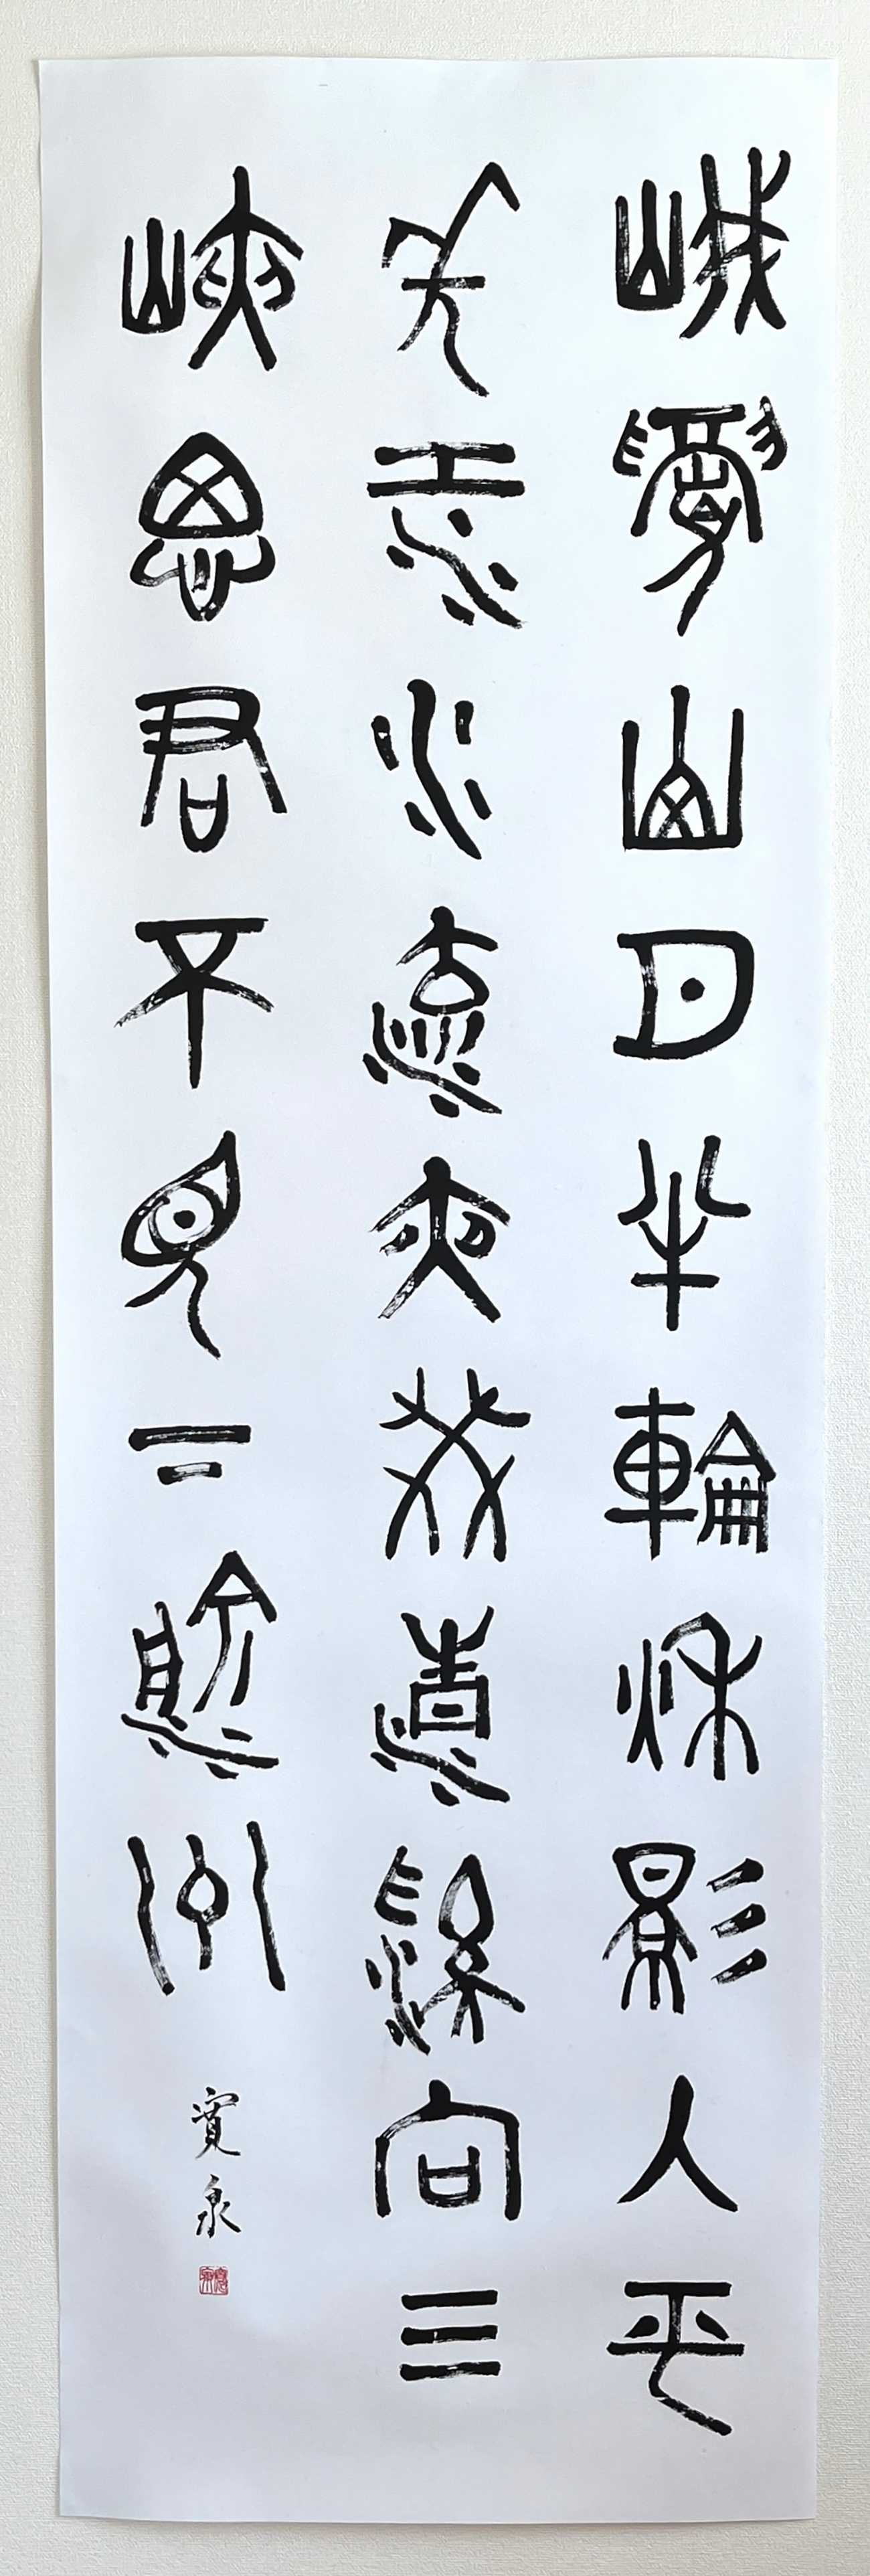 峨眉山月半輪秋影入平
羌江水流夜發清溪向三
峽思君不見下渝州
寛泉